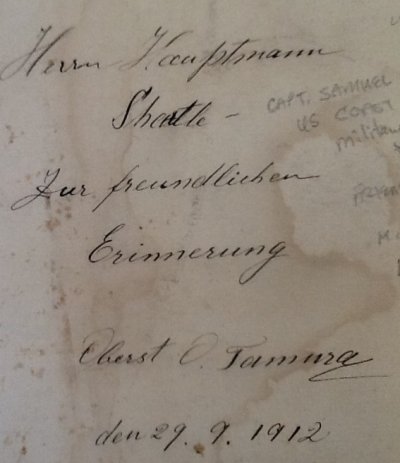 Herrn Hauptmann
Shattle -
Zur freundlichen
Erinnerung
Oberst O. Tamura
den 29. 9. 1912
CAPT. SAMUEL
US COAST